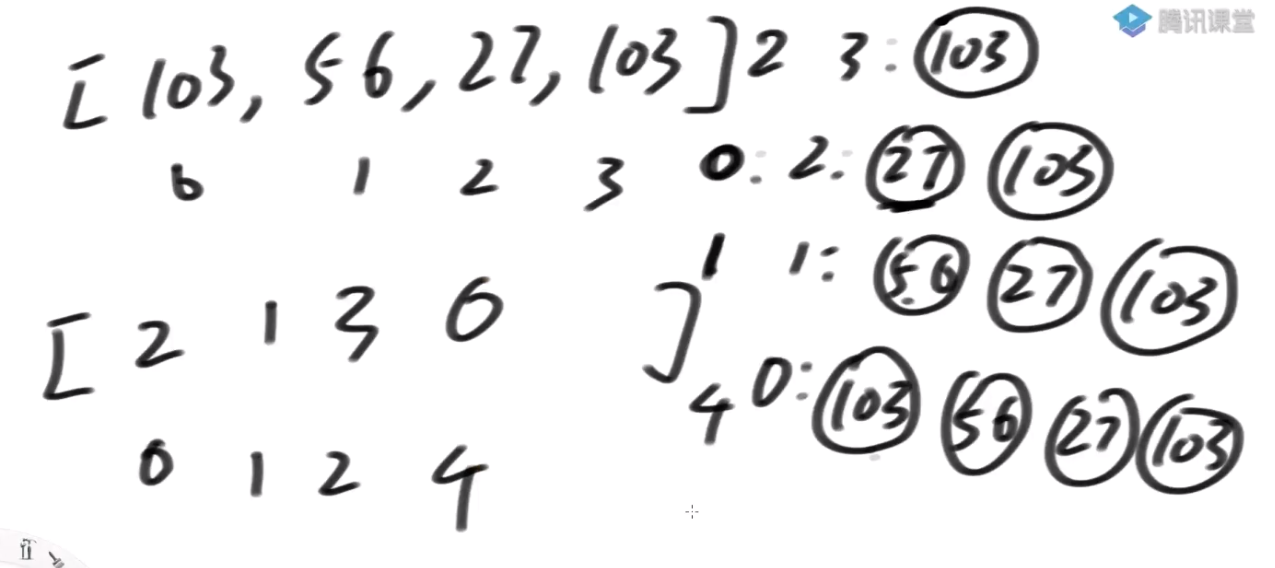 腾讯课堂
[ 103, 56, 27, 103 ] 2 3: 103
0 1 2 3 0: 2: 27 103
1 1: 56 27 103
[ 2 1 3 0 ]
4 0: 103 56 27 103
0 1 2 4